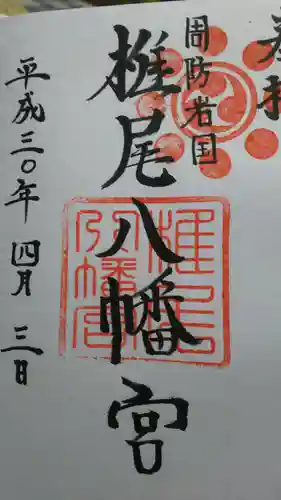 奉拝
周防岩国
椎尾八幡宮
平成三〇年四月三日
椎尾八幡宮